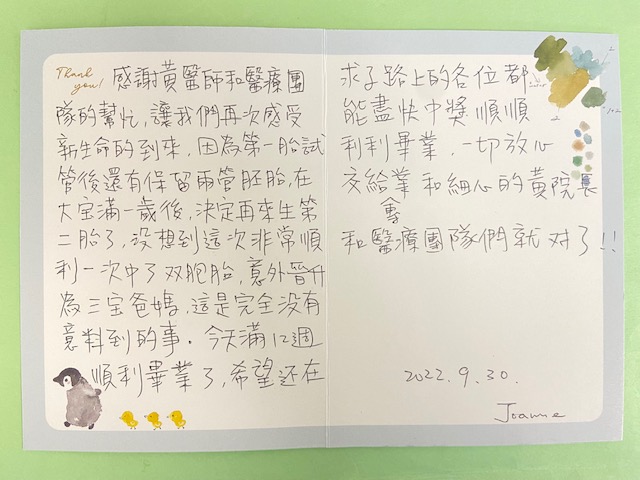 Thank you!
感謝黃醫師和醫療團
隊的幫忙,讓我們再次感受
新生命的到來,因為第一胎試
管後還有保留兩管胚胎,在
大宝滿一歲後,決定再來生第
二胎了,沒想到這次非常順
利一次中了双胞胎,意外晉升
為三宝爸媽,這是完全没有
意料到的事。今天滿12週
順利畢業了,希望还在
求子路上的各位都
能盡快中獎順順
利利畢業,一切放心
交給業和細心的黃院長
專
和醫療團隊們就对了!!
2022.9.30.
Joanne